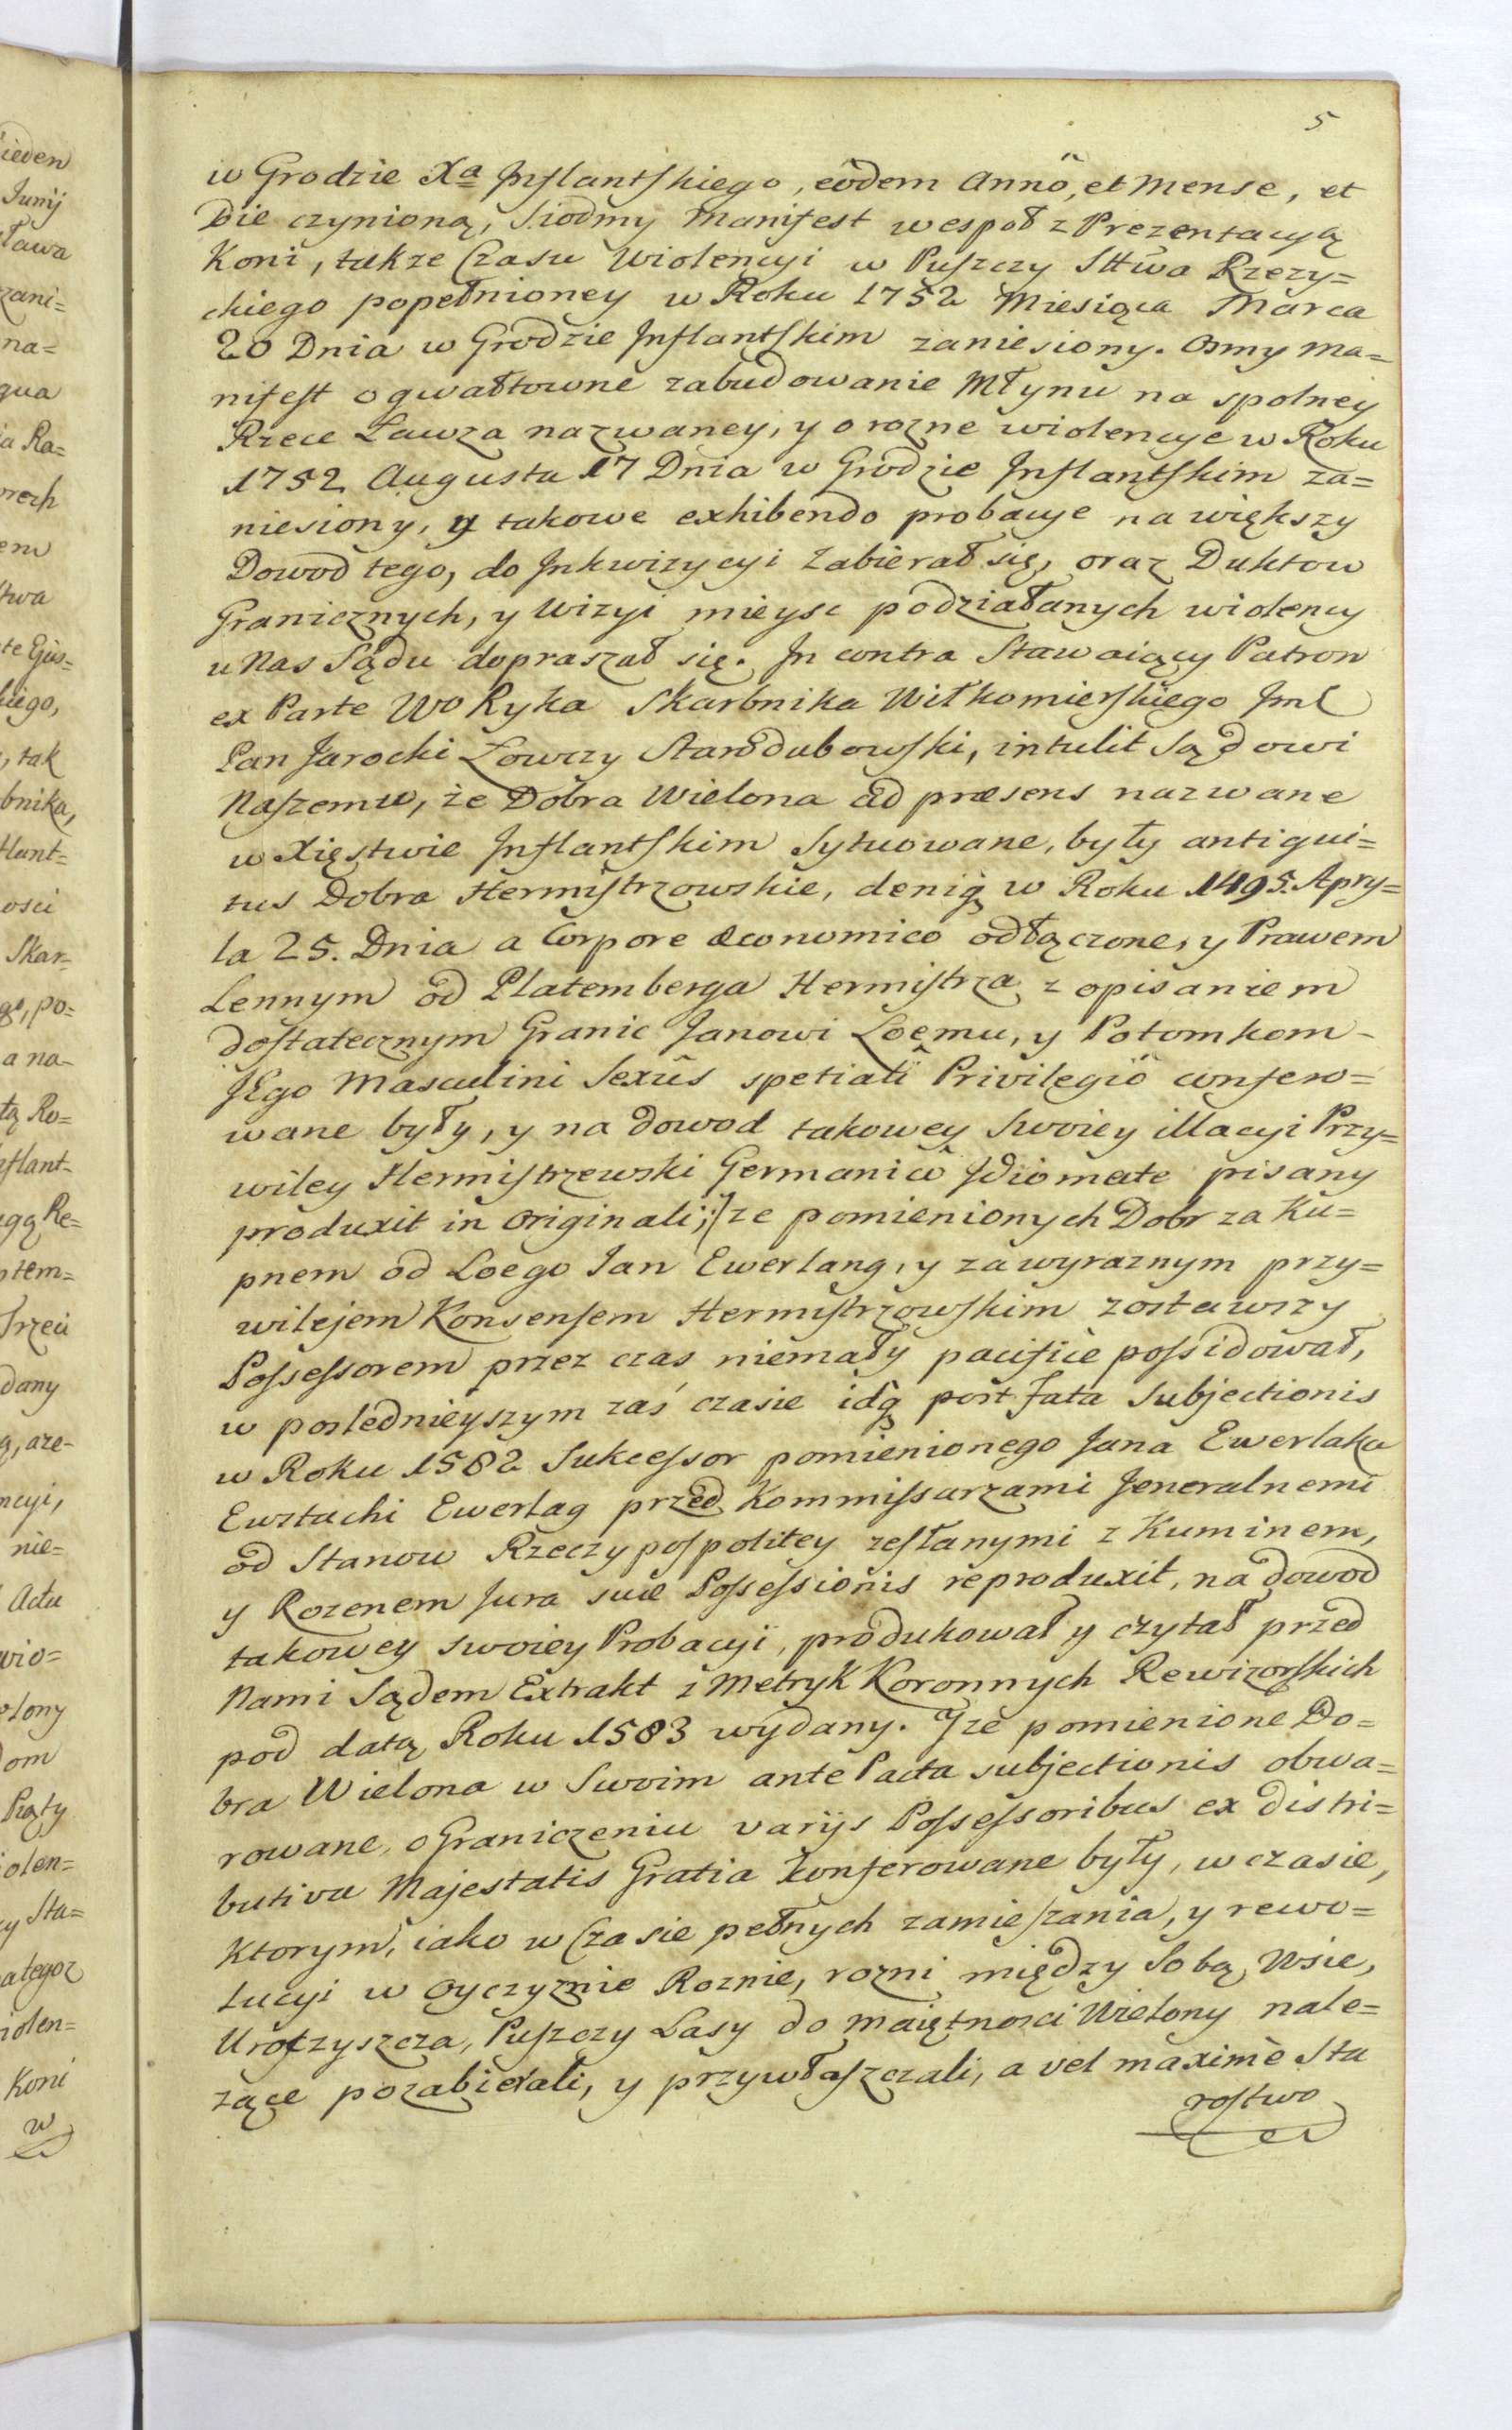 5
w Grodzie Xa Inflantskiego, eôdem Annô, et Mense, et
Die czynioną, Siodmy Manifest wespoł z Prezentacyą
Koni, takze Czasu Wiolencyi w Puszczy Sttwa Rzezy=
ckiego popełnioney w Roku 1752 Miesiąca Marca
20 Dnia w Grodzie Inflantskim zaniesiony. Osmy Ma=
nifest o gwałtowne zabudowanie Młynu na spolney
Rzece Lawza nazwaney, y o rozne wiolencye w Roku
1752 Augusta 17 Dnia w Grodzie Inflantskim za=
niesiony, y takowe exhibendo probacye na większy
Dowod tego, do Inkwizycyi zabierał się, oraz Duktow
Granicznych, y Wizyi mieysc podziałanych wiolency
u Nas Sądu dopraszał się. In contra Stawaiący Patron
ex Parte Wo Ryka Skarbnika Wiłkomierskiego Jmć
Pan Jarocki Łowczy Starodubowski, intulit Sądowi
Naszemu, że Dobra Wielona ad præsens nazwane
w Xięstwie Inflantskim Sytuowane, były antiqui=
tus Dobra Hermistrzowskie, deniq w Roku 1495. Apry=
la 25. Dnia a Corpore œconomico odłączone, y Prawem
Lennym od Platemberga Hermistrza z opisaniem
dostatecznym Granic Janowi Loemu, y Potomkom
JEgo Masculini Sexûs spetiali Privilegiô confero=
wane były, y na dowod takowey Swoiey illacyi Przy=
wiley Hermistrzewski Germanicô Idiomate pisany
produxit in Originali; Jze pomienionych Dobr za Ku=
pnem od Loego Jan Ewerlang, y za wyraznym przy=
wilejem Konsensem Hermistrzowskim zostawszy
Possessorem przez czas niemały pacificè possidował,
w poslednieyszym zaś czasie idq post Fata Subjectionis
w Roku 1582 Sukcessor pomienionego Jana Ewerlaka
Eustachi Ewerlag przed Kommissarzami Jeneralnemi
od Stanow Rzeczypospolitey zesłanymi z Kuminem,
y Rozenem Jura suæ Possessionis reproduxit, na dowod
takowey swoiey Probacyi, produkował y czytał przed
Nami Sądem Extrakt z Metryk Koronnych Rewizorskich
pod datą Roku 1583 wydany. Jze pomienione Do=
bra Wielona w Swoim ante Pacta subjectionis obwa=
rowane, o Graniczeniu varijs Possessoribus ex distri=
butiva Majestatis Gratia konferowane były, w czasie,
Ktorym, iako w Czasie pełnych zamieszania, y rewo=
lucyi w Oyczyznie Roznie, rozni między Sobą, Wsie,
Uroczyszcza, Puszczy Lasy do Maiętnosci Wielony nale=
zące pozabierali, y przywłaszczali, a vel maximè Sta
rostwo
ieden
Junij
ława
zani=
na=
qua
ia Ra=
em
twa
kiego,
, tak
bnika,
tlant=
osci
Skar=
go, po=
a na=
tą Ro=
nflant=
Trzeci
dany
ncyi,
nie=
Actu
wio=
om
Piąty
iolen=
y Sta=
ategoz
iolen=
Koni
w